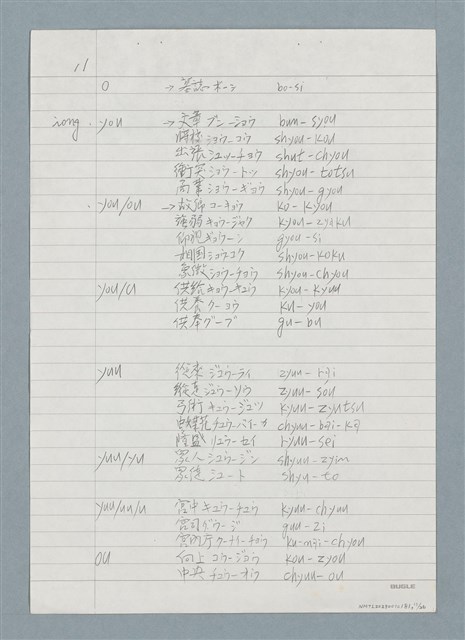 11
O → 墓誌 ボーシ bo-si
iong. you → 文章 ブンーショウ bun-syou
勝 ショウーコウ shyou-kou
出張 シュッーチョウ shut-chyou
衝突 ショウートツ shyou-totsu
商業 ショウーギョウ shyou-gyou
. you/ou → 故郷 コーキョウ ko-kyou
強弱 キョウージャク kyou-zyaku
仰 ギョウーシ gyou-si
相国 ショウコク shyou-koku
象徴 ショウーチョウ shyou-chyou
you/u 供給 キョウーキュウ kyou-kyuu
供養 クーヨウ ku-you
供奉 グーブ gu-bu
yuu 従来 ジュウーライ zyuu-rai
縦走 ジュウーソウ zyuu-sou
弓術 キュウージュツ kyuu-zyutsu
虫媒花 チュウーバイーカ chyuu-bai-ka
隆盛 リュウーセイ ryuu-sei
yuu/yu 眾人 シュウージン shyuu-zyin
眾徒 シュート shyu-to
yuu/uu/u 宮中 キュウーチュウ kyuu-chyuu
宮司 グウージ guu-zi
宮内庁 クーナイーチョウ ku-nai-chyou
ou 向上 コウージョウ kou-zyou
中央 チュウーオウ chyuu-ou
BUGLE